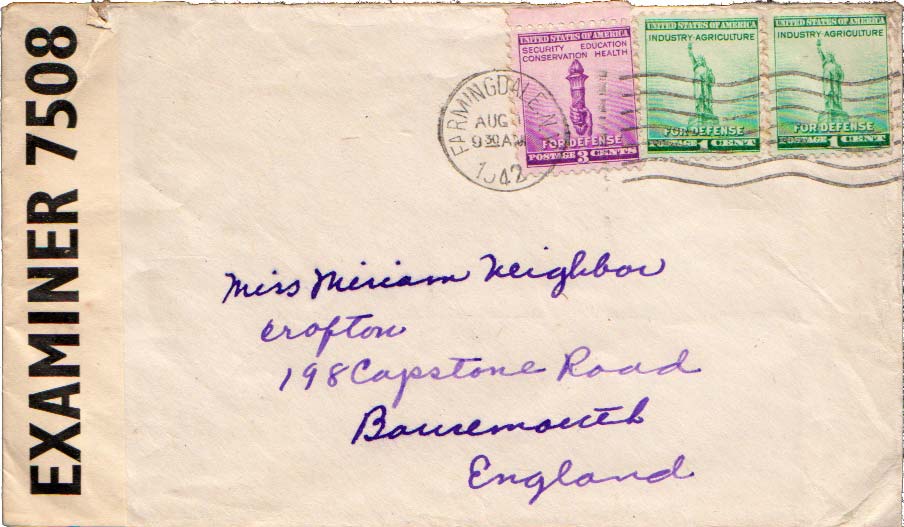 EXAMINER 7508
UNITED STATES OF AMERICA
SECURITY EDUCATION
CONSERVATION HEALTH
FOR DEFENSE
POSTAGE 3 CENTS
UNITED STATES OF AMERICA
INDUSTRY·AGRICULTURE
FOR DEFENSE
POSTAGE 1 CENT
UNITED STATES OF AMERICA
INDUSTRY·AGRICULTURE
FOR DEFENSE
POSTAGE 1 CENT
FARMINGDALE
AUG
930 AM
1942
Miss Miriam Neighbor
Crofton
198 Capstone Road
Bournemouth
England